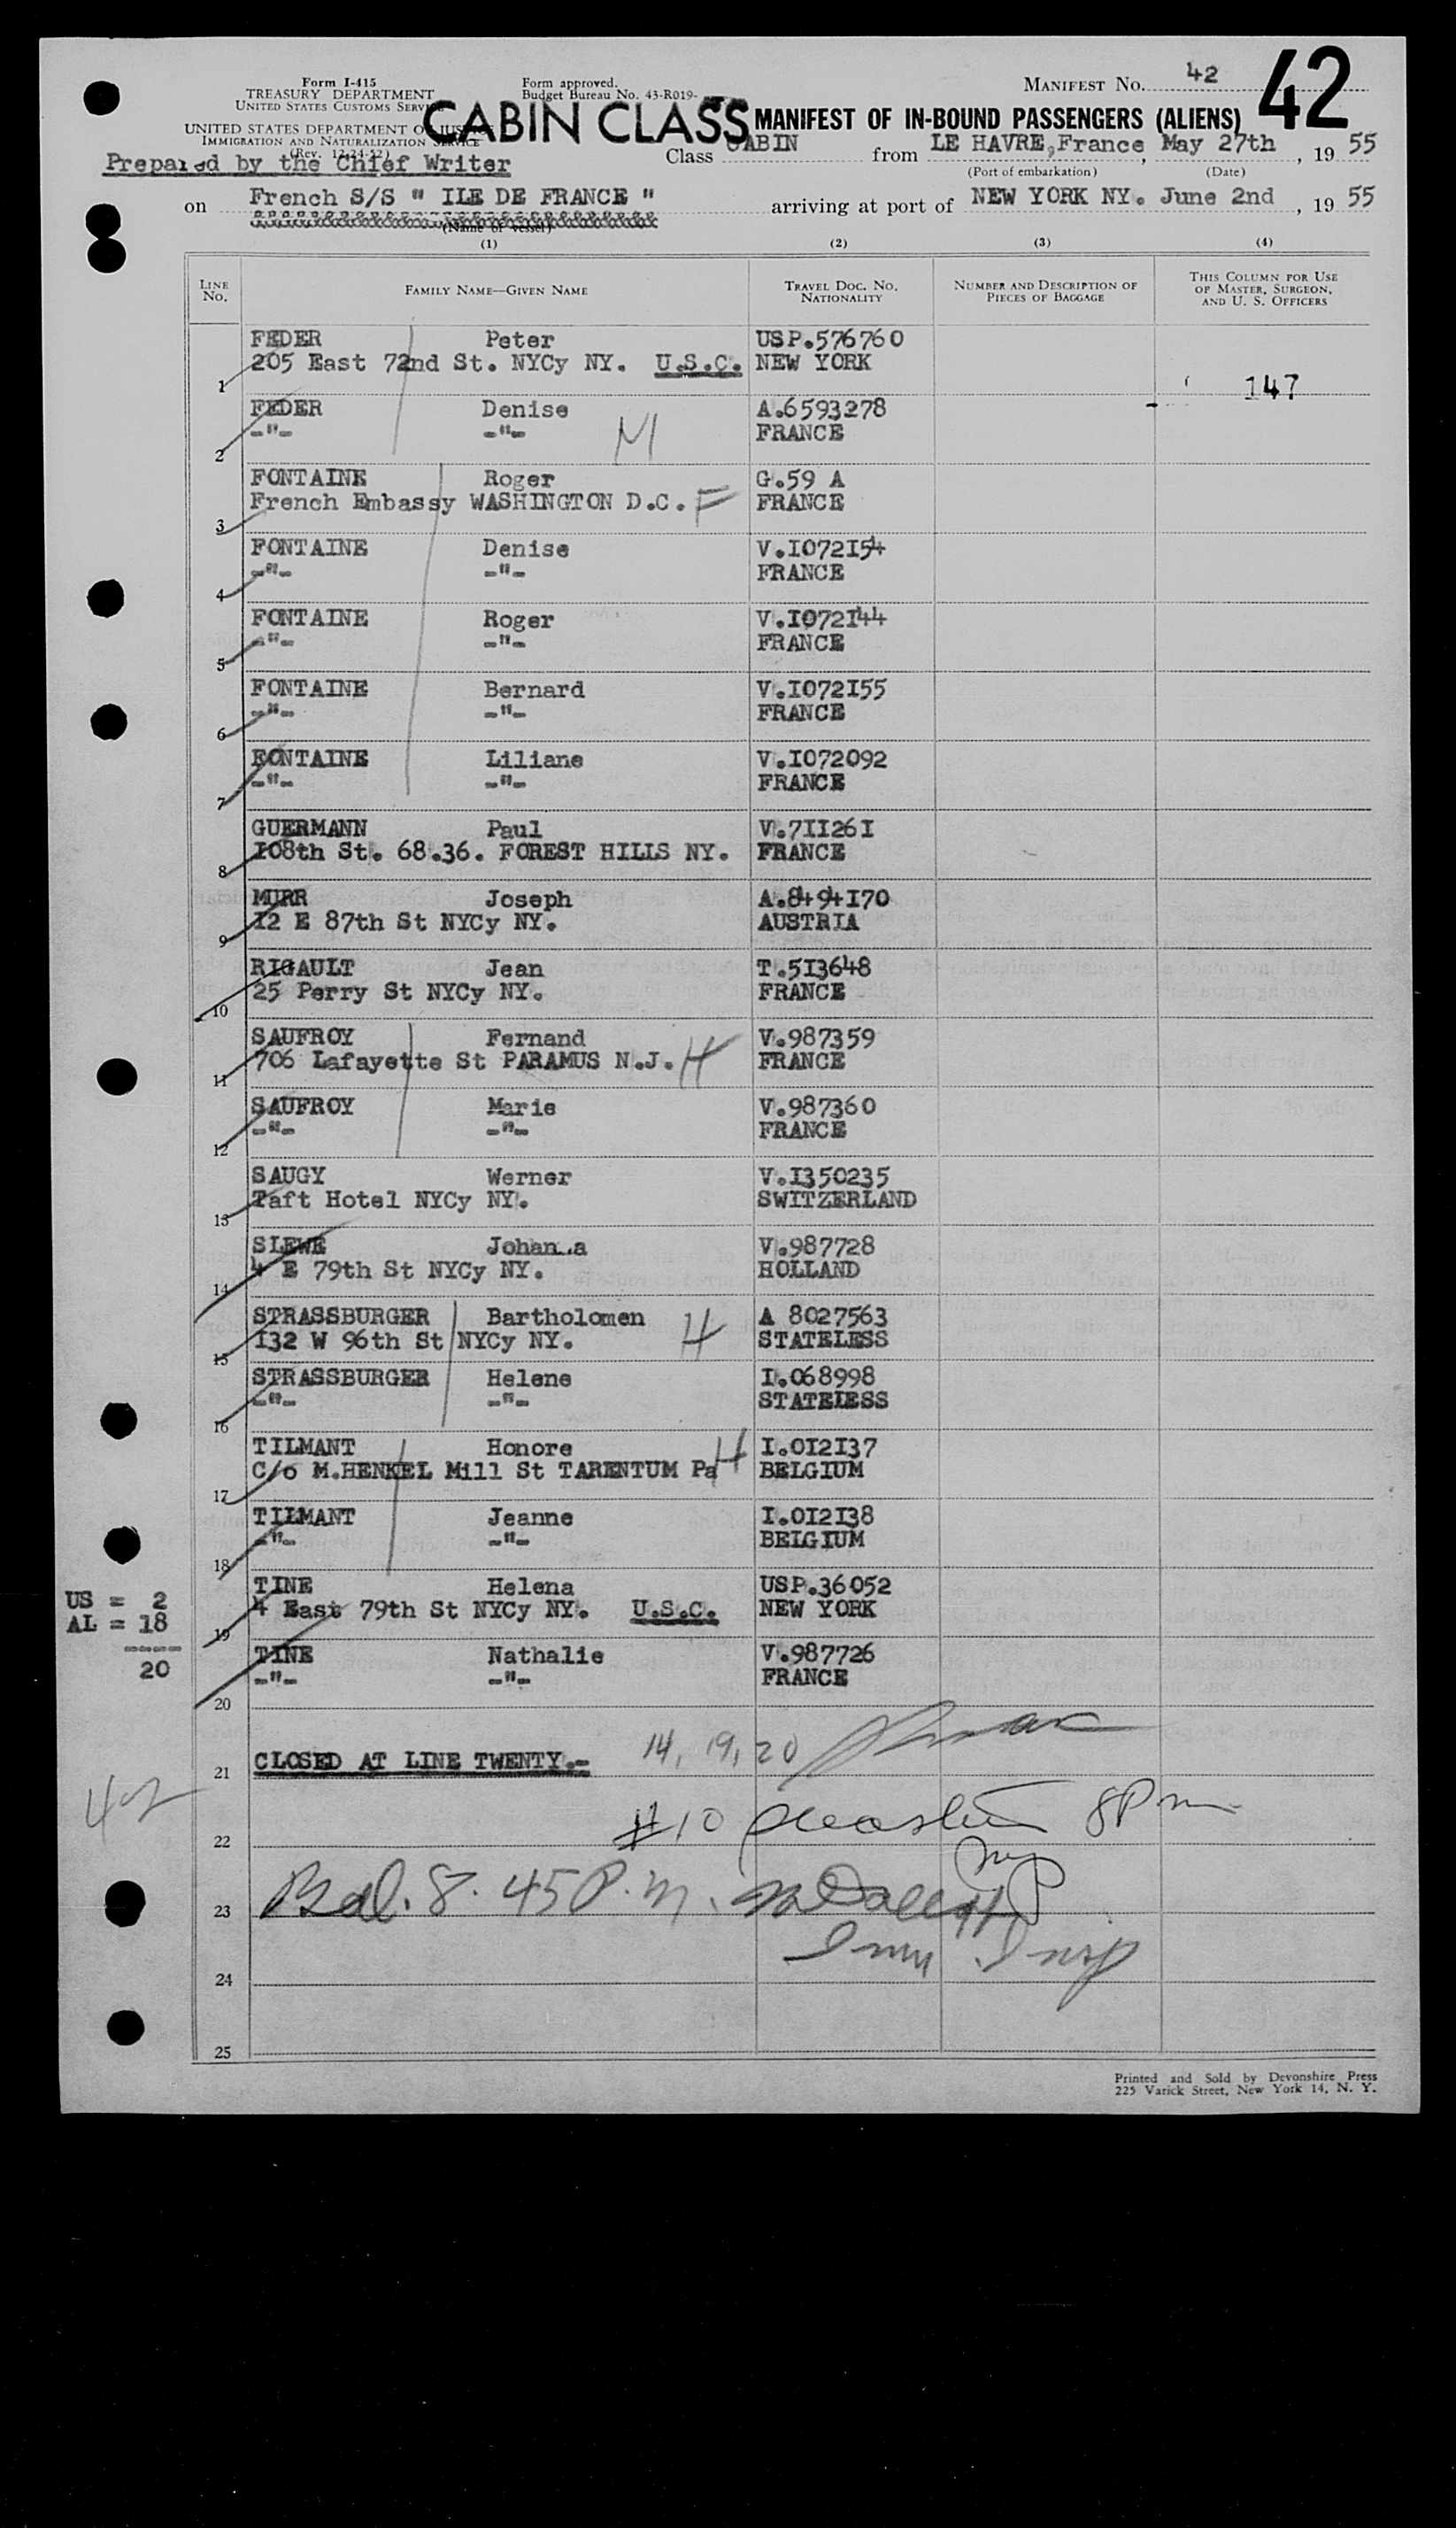 Form I-415
TREASURY DEPARTMENT
UNITED STATES CUSTOMS SERVICE
UNITED STATES DEPARTMENT OF JUSTICE
IMMIGRATION AND NATURALIZATION SERVICE
(Rev. 12-24-52)
Form approved.
Budget Bureau No. 43-R019-
MANIFEST No. 42
42
CABIN CLASS
MANIFEST OF IN-BOUND PASSENGERS (ALIENS)
Prepared by the Chief Writer
Class CABIN from LE HAVRE, France, May 27th, 19 55
(Port of embarkation) (Date)
on French S/S " ILE DE FRANCE " arriving at port of NEW YORK NY. June 2nd, 19 55
(Name of vessel)
(1) (2) (3) (4)
LINE No. FAMILY NAME—GIVEN NAME TRAVEL DOC. NO. NATIONALITY NUMBER AND DESCRIPTION OF PIECES OF BAGGAGE THIS COLUMN FOR USE OF MASTER, SURGEON, AND U. S. OFFICERS
FEDER Peter USP.576760
1 205 East 72nd St. NYCy NY. U.S.C. NEW YORK
147
FEDER Denise A.6593278
2 -"- -"- M FRANCE
FONTAINE Roger G.59 A
3 French Embassy WASHINGTON D.C. F FRANCE
FONTAINE Denise V.I072I54
4 -"- -"- FRANCE
FONTAINE Roger V.I072I44
5 -"- -"- FRANCE
FONTAINE Bernard V.I072I55
6 -"- -"- FRANCE
FONTAINE Liliane V.I072092
7 -"- -"- FRANCE
GUERMANN Paul V.7II26I
8 I08th St. 68.36. FOREST HILLS NY. FRANCE
MURR Joseph A.8494I70
9 I2 E 87th St NYCy NY. AUSTRIA
RIGAULT Jean T.5I3648
10 25 Perry St NYCy NY. FRANCE
SAUFROY Fernand V.987359
11 706 Lafayette St PARAMUS N.J. H FRANCE
SAUFROY Marie V.987360
12 -"- -"- FRANCE
SAUGY Werner V.I350235
13 Taft Hotel NYCy NY. SWITZERLAND
SLEWE V.987728
14 4 E 79th St NYCy NY. HOLLAND
STRASSBURGER Bartholomen A 8027563
15 I32 W 96th St NYCy NY. H STATELESS
STRASSBURGER Helene I.068998
16 -"- -"- STATELESS
TILMANT Honore I.0I2I37
17 C/o M.HENKEL Mill St TARENTUM Pa H BELGIUM
TILMANT Jeanne I.0I2I38
18 -"- -"- BELGIUM
TINE Helena USP.36052
19 4 East 79th St NYCy NY. U.S.C. NEW YORK
TINE Nathalie V.987726
20 -"- -"- FRANCE
US = 2
AL = 18
----
20
21 CLOSED AT LINE TWENTY.- 14, 19, 20
42
22 #10 8 P m
23 Bal. 8. 45 P. m.
24
25
Printed and Sold by Devonshire Press
225 Varick Street, New York 14, N. Y.